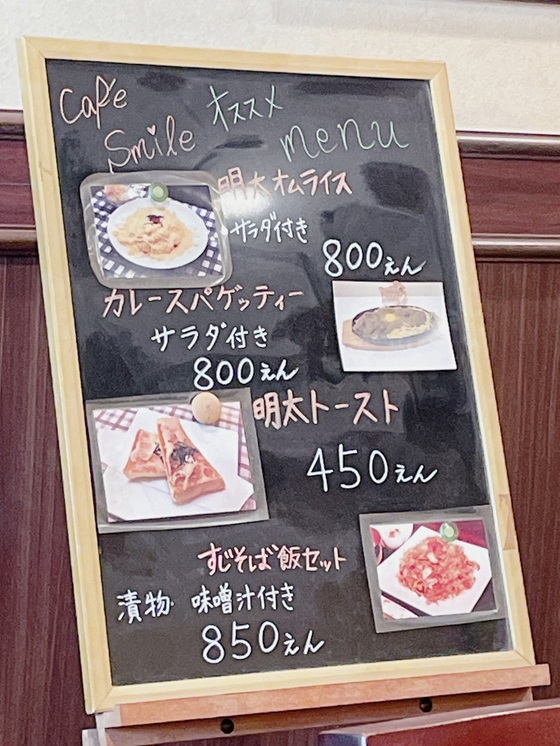 Café
Smile
オススメ
menu
明太オムライス
・サラダ付き
800えん
カレースパゲッティー
サラダ付き
800えん
明太トースト
450えん
すじそば飯セット
漬物 味噌汁付き
850えん